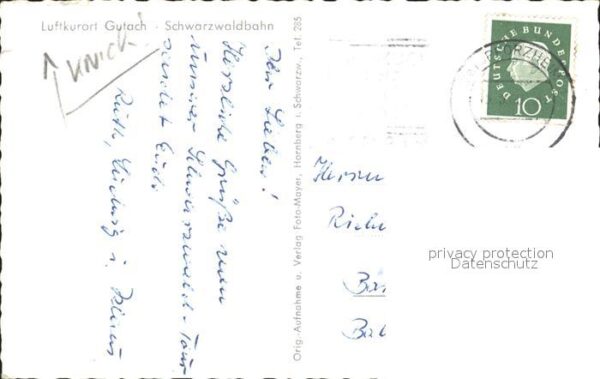 Luftkurort Gutach · Schwarzwaldbahn
KNICK!
Ihr Lieben!
Herzliche Grüße von
unserer Schwarzwald-Tour
sendet Euch
Ruth, Ludwig u.
Orig.-Aufnahme u. Verlag Foto-Mayer, Hornberg i. Schwarzw., Tel. 285
DEUTSCHE BUNDESPOST
10
PFORZHE
Herrn
privacy protection
Datenschutz